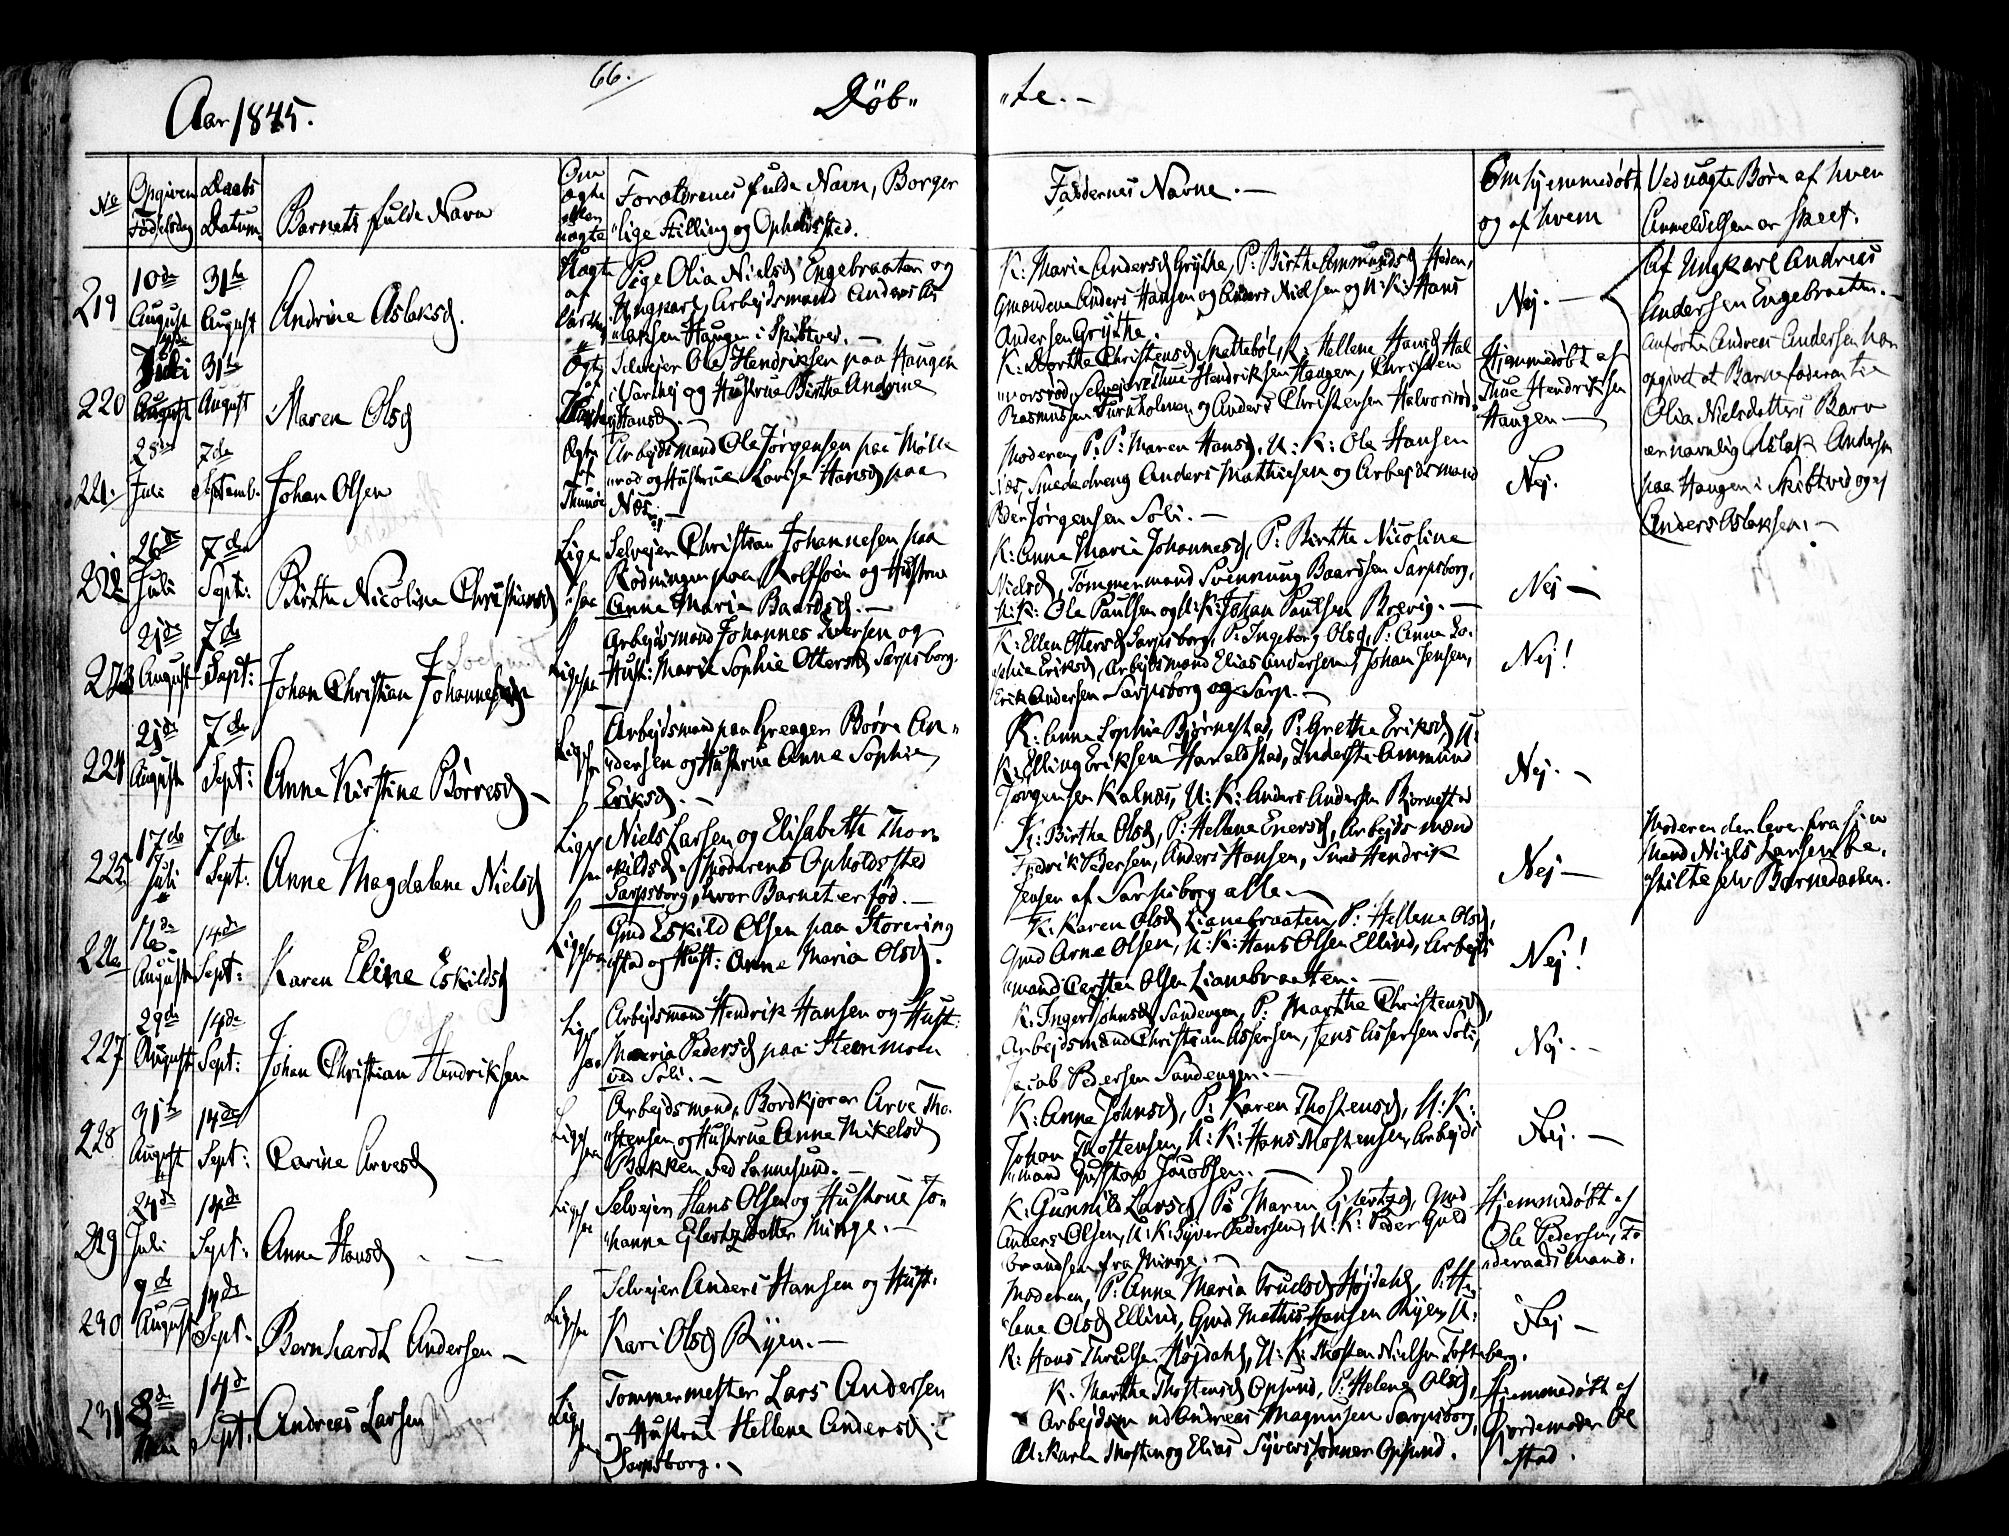 66.
Aar 1845.
Døb„
„te. —
No
Opgiven Fødselsdag
Daabs Datum
Barnets fulde Navn
Om ægte eller uægte
Forældrenes fulde Navn, Borger
„lige Stilling og Opholdssted.
Faddernes Navne. —
Om hjemmedøbt
og af hvem
Ved uægte Børn af hvem
Anmeldelsen er skeet.
219
10de August
31te August
Andrine Aslaksd.
Uægte af
Pige Olia Nielsd Engebraaten og
Ungkarl, Arbejdsmand Anders As
„laksen Haugen i Skibtved. —
K: Marie Andersd Grÿthe, P: Birthe Ammundsd Heden,
Gmændene Anders Hansen og Anders Nielsen og U: K: Hans
Andersen Grÿthe.
Nej. —
Af Ungkarl Andreas
Andersen Engebraaten. —
Anførte Andreas Andersen har
opgivet at Barnefaderen til
Olia Nielsdatters Barn
er navnlig Aslak Andersen
paa Haugen i Skibtved og ej
Anders Aslaksen. —
220
Juli August
31te August
Maren Olsd
Ægte af Varteig
Selvejer Ole Hendriksen paa Haugen
i Varteig og Hustrue Birthe Andrine
Hansd. —
K: Dorthe Christensd Snattebøl, P: Hellene Hansd Hal
„vorsrød, Selvejer Thue Hendriksen Haugen, Christen
Rasmussen Furuholmen og Anders Christensen Halvorsrød.
Hjemmedøbt af
Thue Hendriksen
Haugen —
221.
25de Juli
7de Septemb.
Johan Olsen
Ægte af Thunøe
Arbejdsmand Ole Jørgensen paa Mølle
„rød og Hustrue Lovise Hansd paa
Næs. —
Moderen, P: P: Maren Hansd, U: K: Ole Hansen
Næs, Smededreng Anders Mathiesen og Arbejdsmand
Jørgensen Soli. —
Nej.
222
26de Juli
7de Sept:
Birthe Nicoline Christiansd
Lige „saa
Selvejer Christian Johannesen paa
Rødningen paa Rolfsøen og Hustrue
Anne Maria Baardsd. —
K: Anne Maria Johannesd, P: Birthe Nicoline
Nielsd, Tømmermand Svennung Baardsen Sarpsborg,
U: K: Ole Paulsen og U: K: Johan Paulsen Brevig. —
Nej —
223
21de August
7de Sept:
Johan Christian Johannesen
Ligesaa
Arbejdsmand Johannes Iversen og
Hust: Marie Sophie Ottersd Sarpsborg.
K: Ellen Ottersd Sarpsborg, P: Ingeborg Olsd, P: Anne So-
„phie Eriksd, Arbejdsmand Elias Andersen, Johan Jensen,
Erik Andersen Sarpsborg og Sarp. —
Nej!
224
23de August
7de Sept:
Anne Kirstine Børresd —
Ligesaa
Arbejdsmand paa Greager Børre An„
„dersen og Hustrue Anne Sophie
Eriksd. —
K: Anna Sophie Bjørnestad, P: Grethe Eriksd, U:
K: Elling Eriksen Haraldstad, Inderste Ammund
Jørgensen Kalnæs, U: K: Anders Andersen Bjørnestad
Nej. —
225
17de Juli
7de Sept:
Anne Magdalene Nielsd
Ligesaa
Niels Larsen og Elisabeth Thor„
„kildsd. Moderens Opholdssted
Sarpsborg, hvor Barnet er fød. —
K: Birthe Olsd, P: Hellene Enersd, Arbejdsmænd
Fredrik Pedersen, Anders Hansen, Smed Hendrik
Jensen af Sarpsborg alle. —
Nej —
Moderen der lever fra sin
Mand Niels Larsen be„
stilte selv Barnedaaben.
226
16de August
14de Sept:
Karen Eline Eskildsd
Ligesaa
Gmd Eskild Olsen paa Horering
„stad og Hust: Anne Maria Olsd.
K: Karen Olsd Lianebraaten, P: Hellene Olsd,
Gmd Arne Olsen, U: K: Hans Olsen Ellind, Arbejds
„mand Carsten Olsen Lianebraaten. —
Nej!
227
29de August
14de Sept:
Johan Christian Hendriksen
Ligesaa
Arbejdsmand Hendrik Hansen og Hust:
Maria Pedersd paa Steenmoen
ved Soli. —
K: Inger Johnsd Sandengen, P: Marthe Christensd,
Arbejdsmænd Christian Assersen, Jens Assersen Soli,
Jacob Pedersen Sandengen. —
Nej. —
228
31te August
14de Sept:
Carine Arvesd
Ligesaa
Arbejdsmand, Bordkjører Arve Tho„
„stensen og Hustrue Anne Mikelsd
Bakken ved Sannesund. —
K: Anne Johnsd, P: Karen Thostensd, U: K:
Johan Thostensen, U: K: Hans Thostensen, Arbejds
„mand Gustav Jacobsen. —
Nej. —
229
24de Juli
14de Sept:
Anne Hansd
Ligesaa
Selvejer Hans Olsen og Hustrue Jo„
„hanne Ejlertzdatter Minge. —
K: Gunnild Larsd, P: Maren Ejlertzd, Gmd
Anders Olsen, U: K: Syver Pedersen, U: K: Peder Guld
brandsen fra Minge. —
Hjemmedøbt af
Ole Pedersen, Fø
„deraadsmand.
230
9de August
14de Sept.
Bernhardt Andersen —
Ligesaa
Selvejer Anders Hansen og Hust:
Kari Olsd Ryen. —
Moderen, P: Anne Maria Truelsd Højdahl, P: He
„lene Olsd Ellind, Gmd Mathis Hansen Ryen, U:
K: Hans Thruelsen Højdahl, U: K: Thosten Nielsen Toftæberg.
Nej —
231
8de Mai
14de Sept:
Andreas Larsen
Ligesaa
Tømmermester Lars Andersen
og Hustrue Hellene Andersd.
Sarpsborg. —
K: Marthe Thostensd Opsund, P: Helene Olsd,
Arbejdsmænd Andreas Magnusen Sarpsborg,
U: Karle Thosten og Elias Syverssønner Opsund.
Hjemmedøbt af
Gjordemoder Bel
„stad.